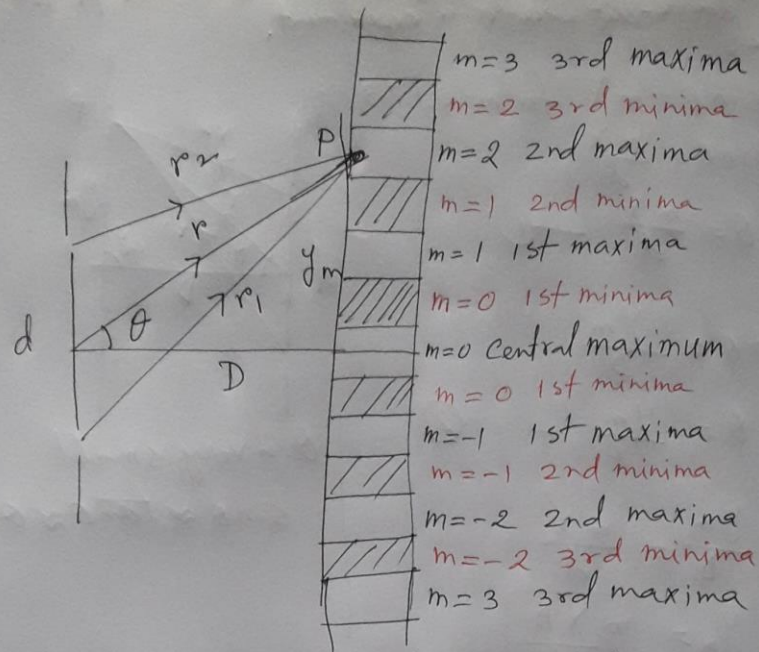 m=3 3rd maxima
m=2 3rd minima
P
m=2 2nd maxima
r2
m=1 2nd minima
r
m=1 1st maxima
ym
r1
m=0 1st minima
θ
d
m=0 Central maximum
D
m=0 1st minima
m=-1 1st maxima
m=-1 2nd minima
m=-2 2nd maxima
m=-2 3rd minima
m=3 3rd maxima